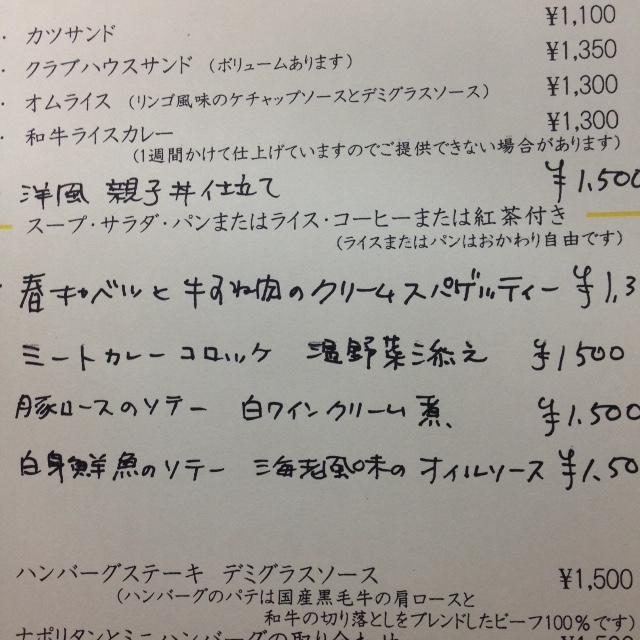 ・ カツサンド ¥1,100
・ クラブハウスサンド （ボリュームあります） ¥1,350
・ オムライス （リンゴ風味のケチャップソースとデミグラスソース） ¥1,300
・ 和牛ライスカレー ¥1,300
（1週間かけて仕上げていますのでご提供できない場合があります）
洋風 親子丼仕立て ¥1.500
スープ・サラダ・パンまたはライス・コーヒーまたは紅茶付き
（ライスまたはパンはおかわり自由です）
春キャベツと牛すね肉のクリームスパゲッティー ¥1,3
ミートカレーコロッケ 温野菜添え ¥1500
豚ロースのソテー 白ワインクリーム煮、 ¥1.500
白身鮮魚のソテー 海老風味のオイルソース ¥1.50
ハンバーグステーキ デミグラスソース ¥1,500
（ハンバーグのパテは国産黒毛牛の肩ロースと
和牛の切り落としをブレンドしたビーフ100％です）
ナポリタンとミニハンバーグの取り合わせ